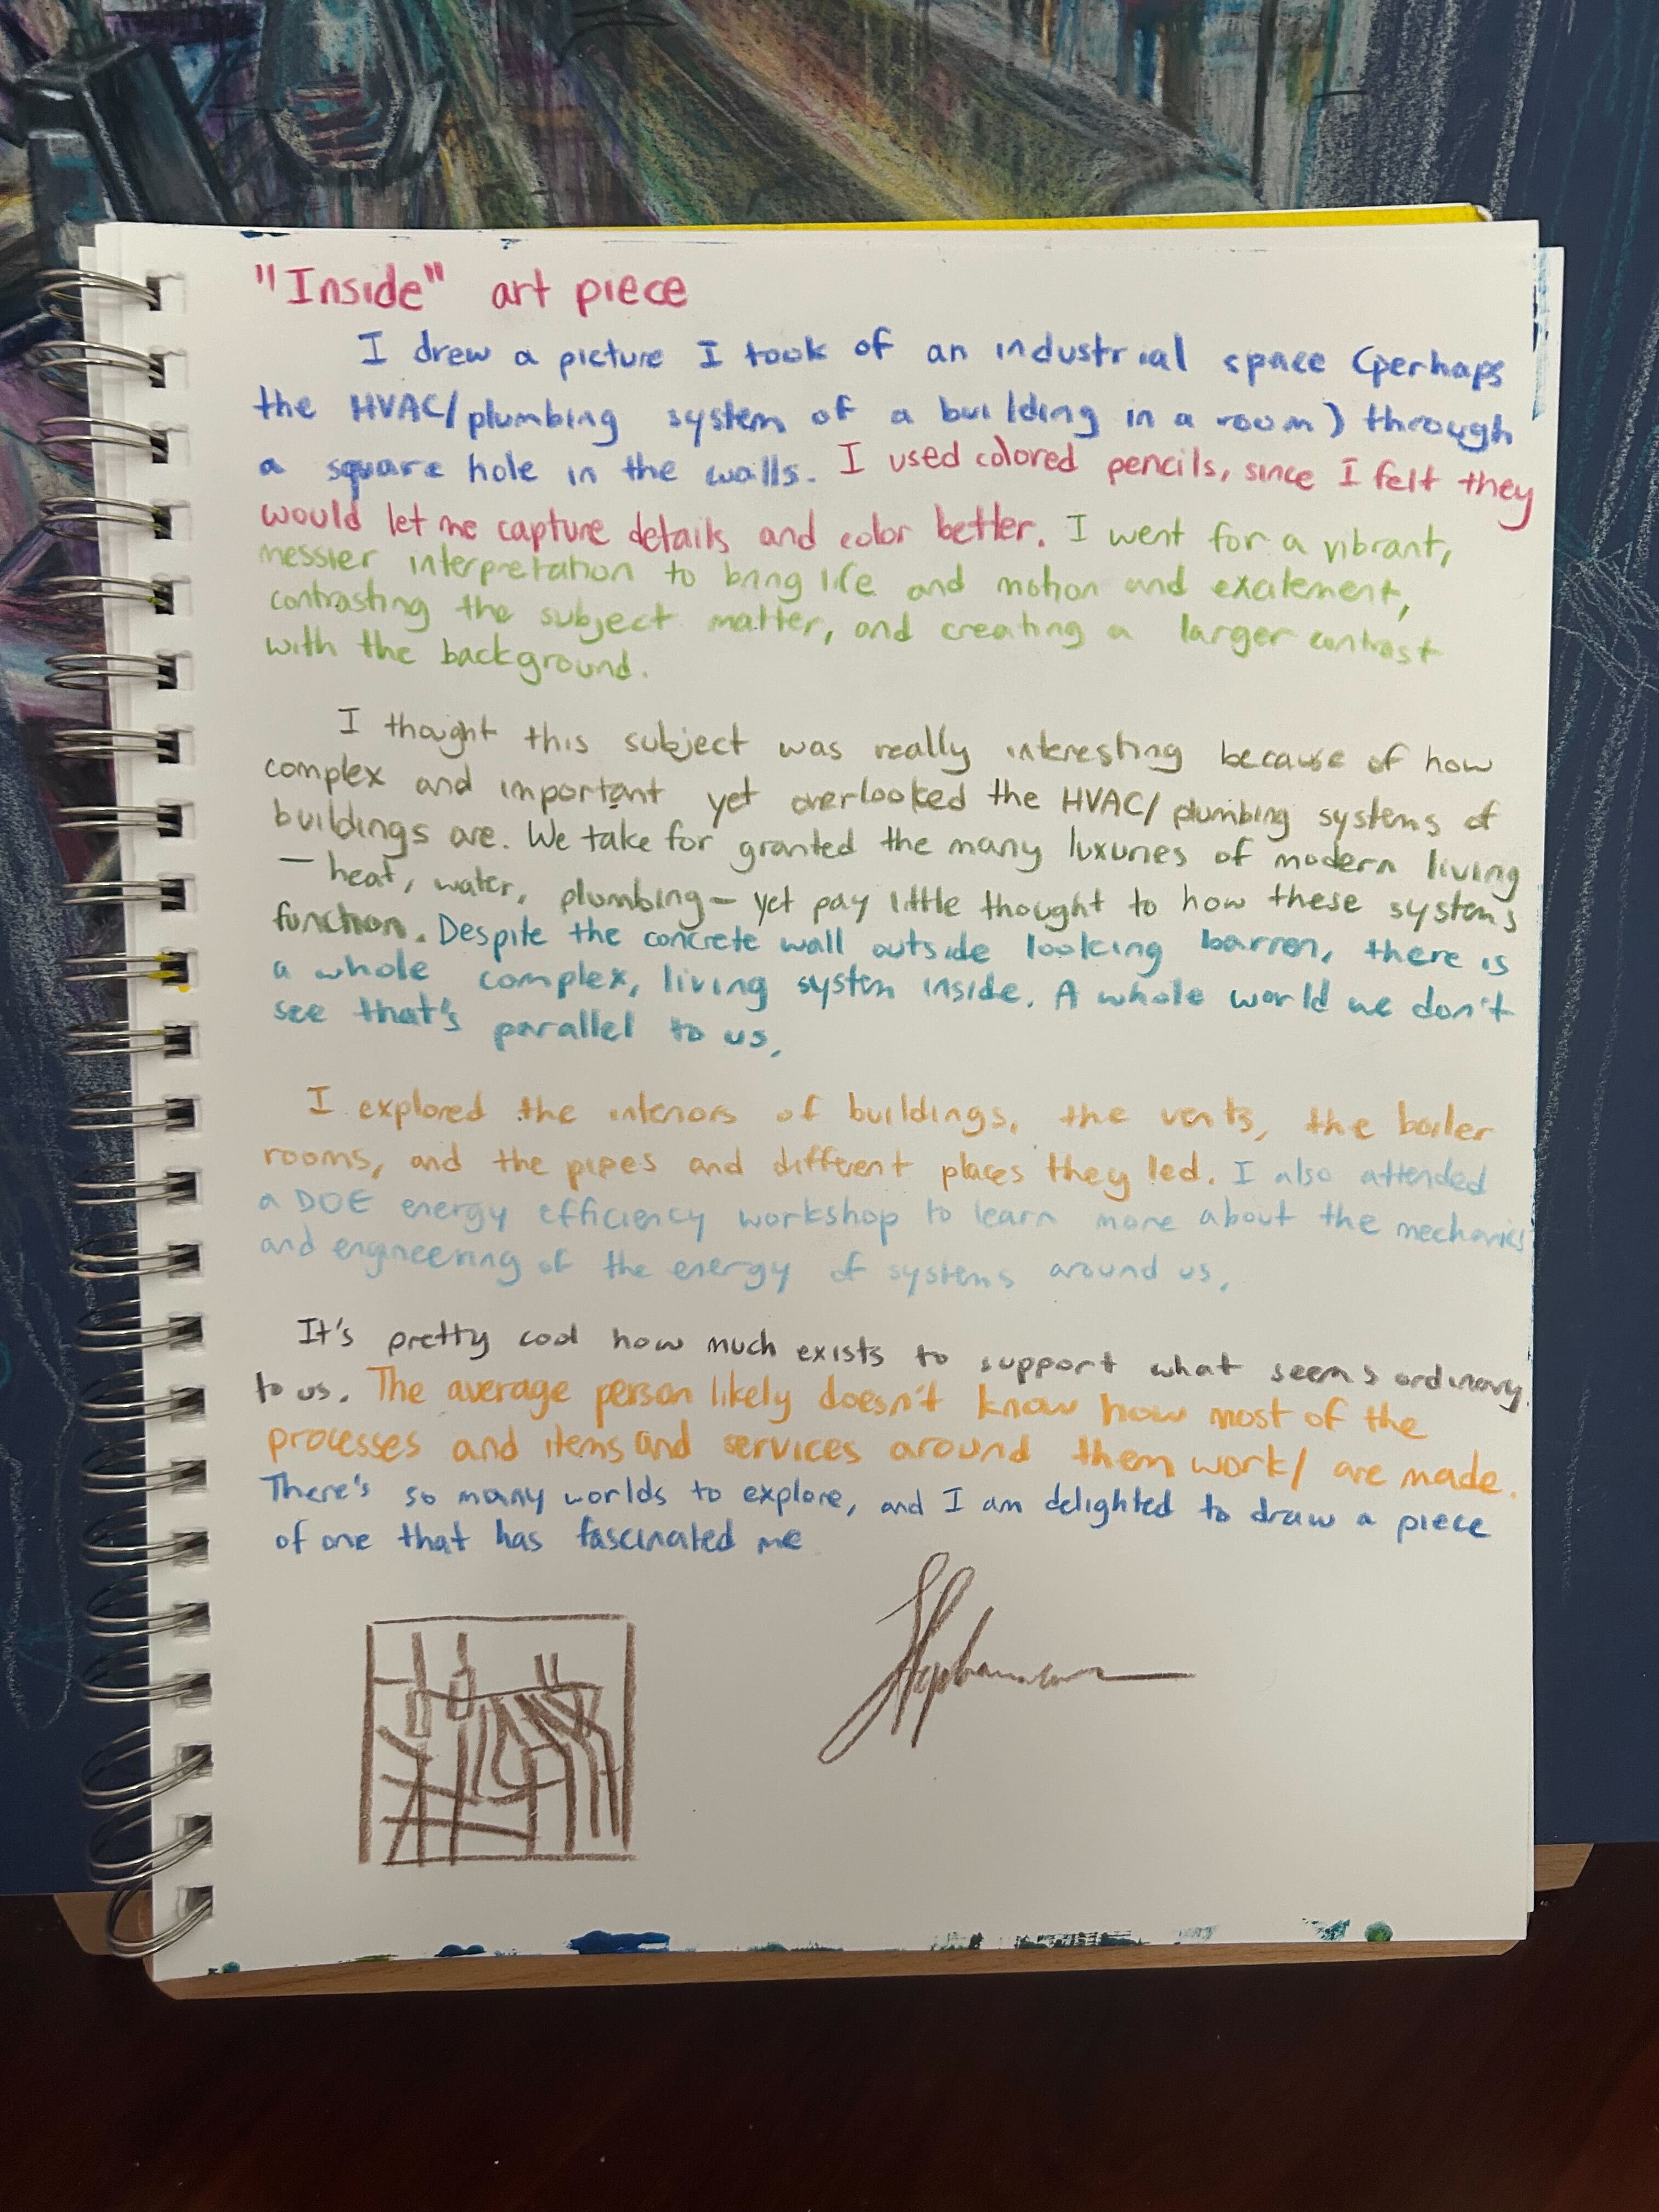 "Inside" art piece
I drew a picture I took of an industrial space (perhaps
the HVAC/plumbing system of a building in a room) through
a square hole in the walls. I used colored pencils, since I felt they
would let me capture details and color better. I went for a vibrant,
messier interpretation to bring life and motion and excitement,
contrasting the subject matter, and creating a larger contrast
with the background.
I thought this subject was really interesting because of how
complex and important yet overlooked the HVAC/plumbing systems of
buildings are. We take for granted the many luxuries of modern living
— heat, water, plumbing — yet pay little thought to how these systems
function. Despite the concrete wall outside looking barren, there is
a whole complex, living system inside. A whole world we don't
see that's parallel to us.
I explored the interiors of buildings, the vents, the boiler
rooms, and the pipes and different places they led. I also attended
a DOE energy efficiency workshop to learn more about the mechanics
and engineering of the energy of systems around us.
It's pretty cool how much exists to support what seems ordinary
to us. The average person likely doesn't know how most of the
processes and items and services around them work/ are made.
There's so many worlds to explore, and I am delighted to draw a piece
of one that has fascinated me